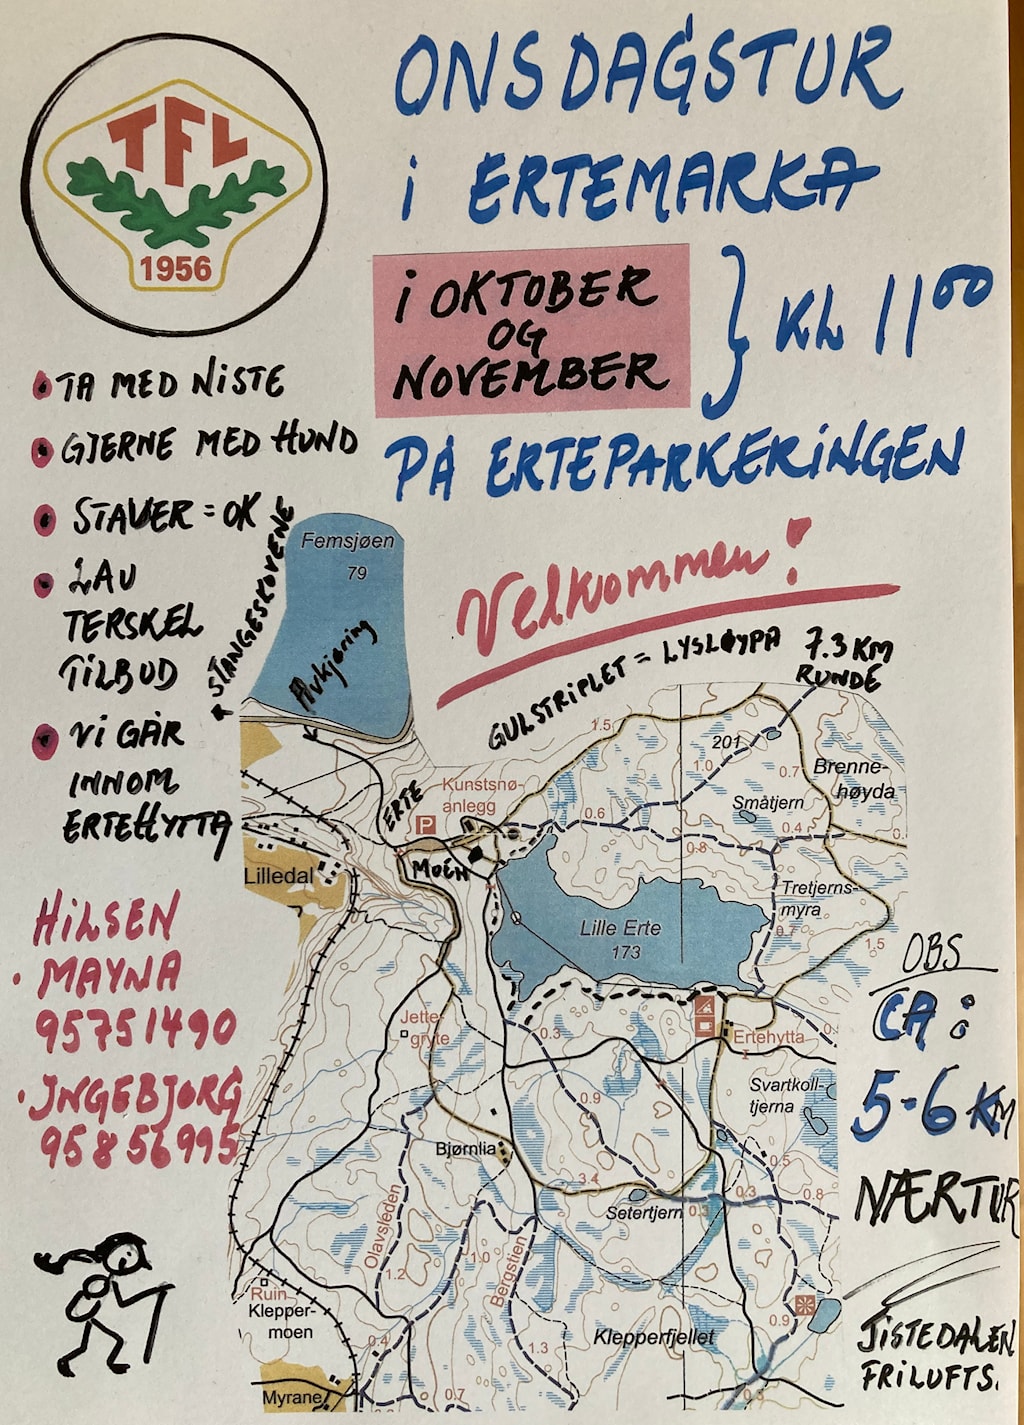 TFL
1956
ONSDAGSTUR
i ERTEMARKA
i OKTOBER
OG
NOVEMBER
KL 11⁰⁰
PÅ ERTEPARKERINGEN
Velkommen!
• TA MED NISTE
• GJERNE MED HUND
• STAVER = OK
• LAV
TERSKEL
TILBUD
• Vi GÅR
INNOM
ERTEHYTTA
HILSEN
• MAYNA
95751490
• INGEBJORG
95856995
STANGESKOVENE
Femsjøen
79
Avkjøring
GULSTRIPLET = LYSLØYPA
7.3 KM
RUNDE
1.5
201
1.0
0.7
Brenne-
høyda
Kunstsnø-
anlegg
ERTE
P
MOEN
0.6
Småtjern
0.4
0.
0.8
Lilledal
Tretjerns-
myra
0.7
1.5
Lille Erte
173
Jette-
gryte
0.3
Ertehytta
0.
Svartkoll-
tjerna
0.9
Bjørnlia
0.5
3.4
0.3
0.8
Setertjern
0.3
Olavsleden
1.2
1.0
Bergstien
Ruin
Klepper-
moen
0.4
1.3
Klepperfjellet
0.9
Myrane
0.7
0.3
OBS
CA:
5-6 KM
NÆRTUR
TISTEDALEN
FRILUFTS.